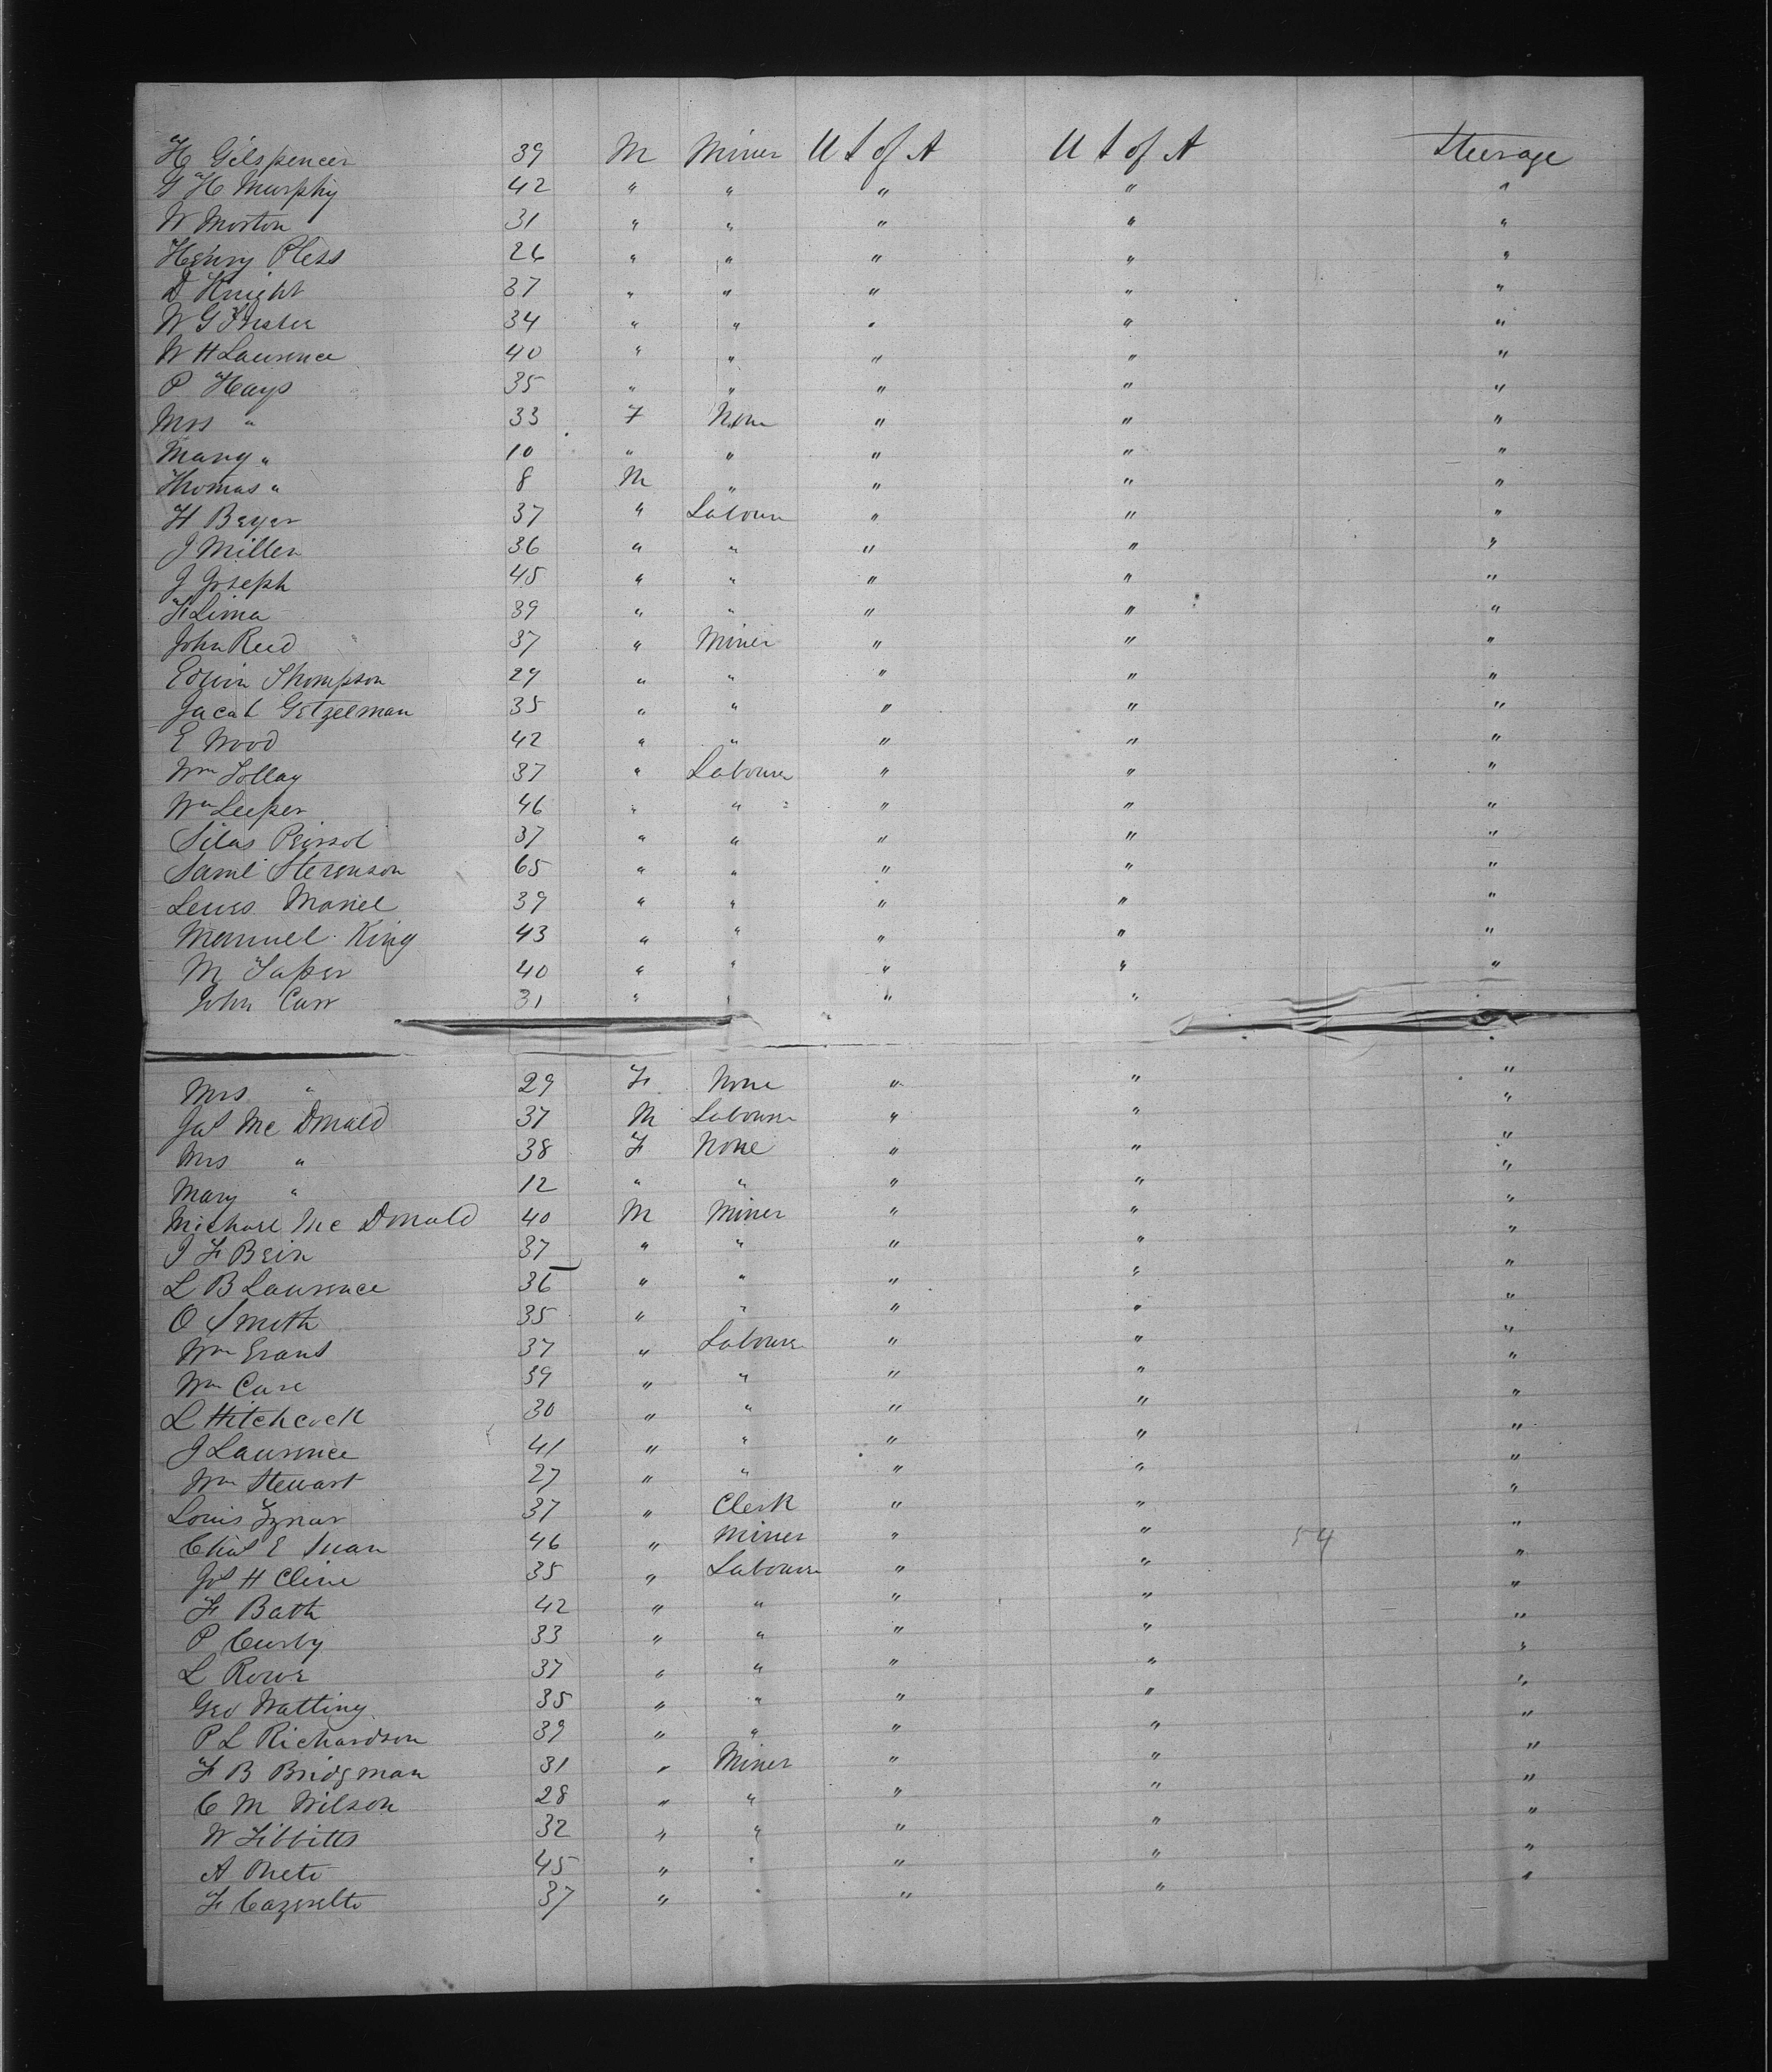 H Gilspencer 39 M Miner U S of A U S of A Steerage
G H Murphy 42 " " " " "
W Morton 31 " " " " "
Henry Pless 26 " " " " "
D Knight 37 " " " " "
W G 34 " " " " "
W H Lawrence 40 " " " " "
P Hays 35 " " " " "
Mrs " 33 F None " " "
Mary " 10 " " " " "
Thomas " 8 M " " " "
H Beyer 37 " Labour " " "
J Miller 36 " " " " "
J Joseph 45 " " " " "
F Lima 39 " " " " "
John Reed 37 " Miner " " "
Edwin Thompson 29 " " " " "
Jacob Getzelman 35 " " " " "
E Wood 42 " " " " "
Wm Tollay 37 " Labourer " " "
Wm Leeper 46 " " " " "
Silas Peirsol 37 " " " " "
Saml Stevenson 65 " " " " "
Lewes 39 " " " " "
Manuel King 43 " " " " "
M Taper 40 " " " " "
John Carr 31 " " " "
Mrs " 29 F None " " "
Jas McDonald 37 M Labourer " " "
Mrs " 38 F None " " "
Mary " 12 " " " " "
Michael McDonald 40 M Miner " " "
J F Bein 37 " " " " "
L B Lawrence 36 " " " " "
O Smith 35 " " " " "
Wm Evans 37 " Labourer " " "
Wm Case 39 " " " " "
L Hitchcock 30 " " " " "
J Lawrence 41 " " " " "
Wm Stewart 27 " " " " "
Louis 37 " Clerk " " "
Chas E Swan 46 " Miner " " 54 "
Jos H Cline 35 " Labourer " " "
F Bath 42 " " " " "
P Curby 33 " " " " "
L Rowe 37 " " " " "
Geo Watting 35 " " " " "
P L Richardson 39 " " " " "
F B Bridgman 31 " Miner " " "
C M Wilson 28 " " " " "
W Tibbitts 32 " " " " "
A Oneto 45 " " " " "
F 37 " " " " "